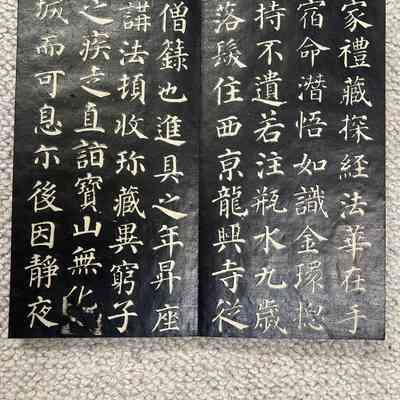 家禮藏探經法華在手
宿命潛悟如識金環揔
持不遺若注瓶水九歲
落髮住西京龍興寺從
僧籙也進具之年昇座
講法頓收珍藏異窮子
之疾走直詣寶山無化
城而可息尒後因靜夜